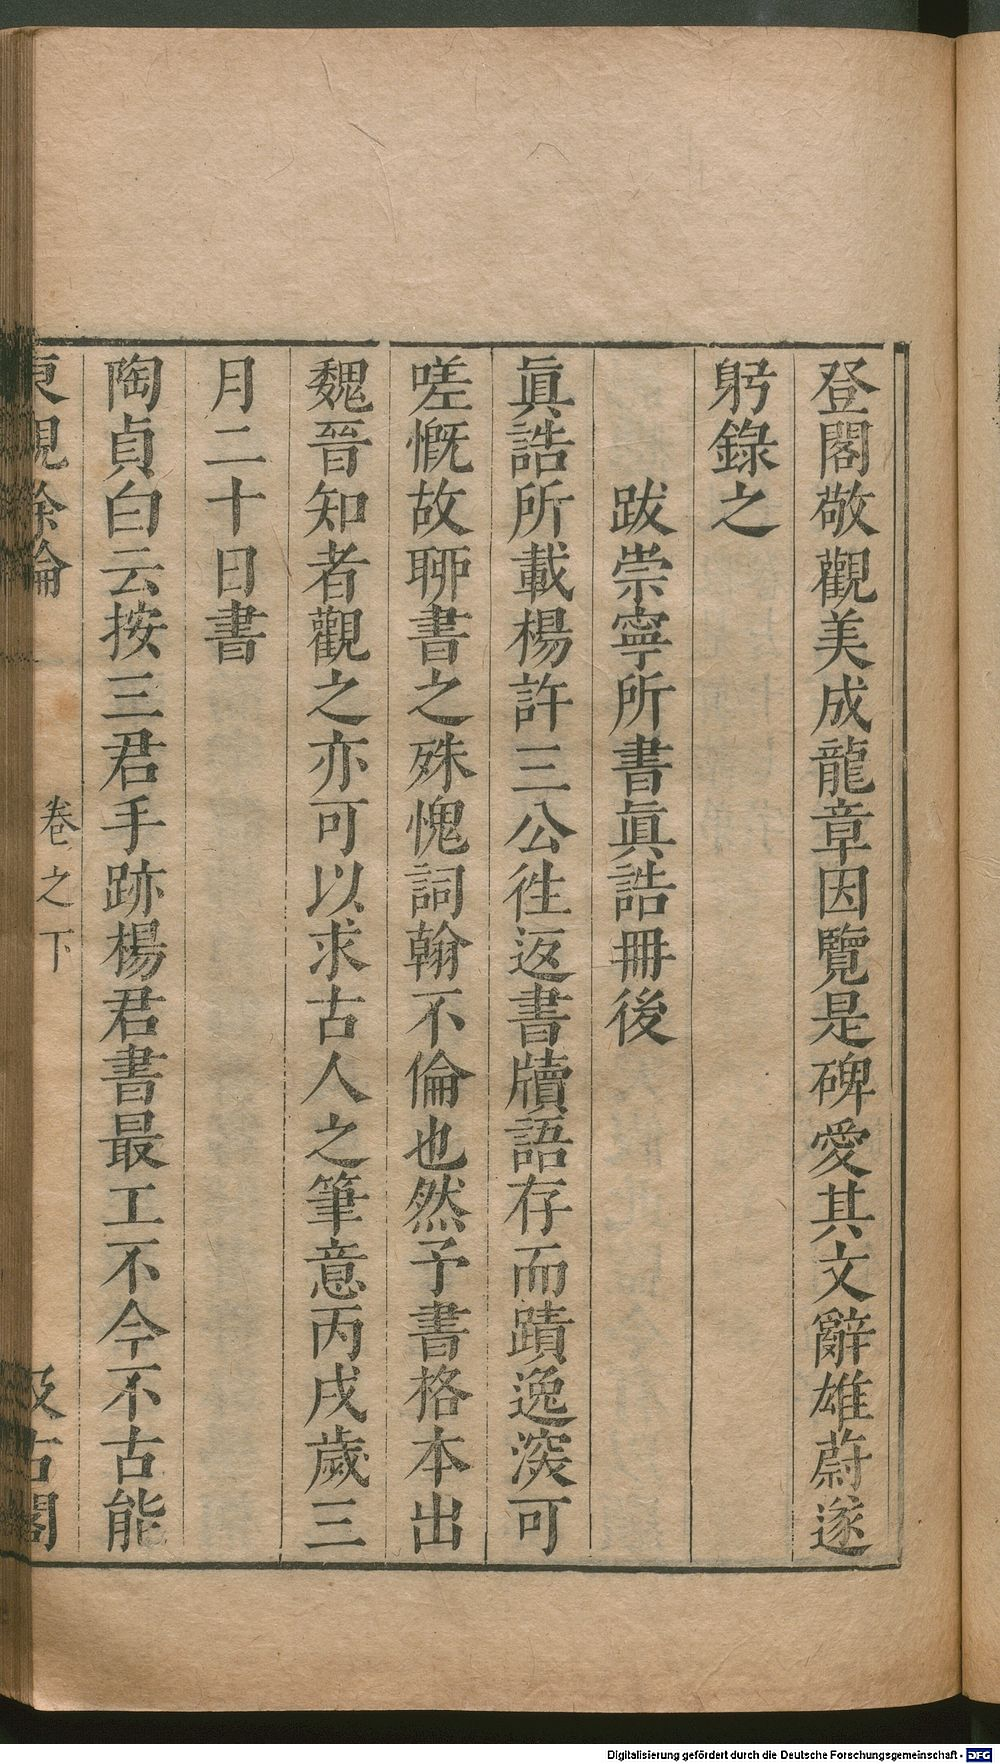 登閣敬觀美成龍章因覽是碑愛其文辭雄蔚遂
躬錄之
跋崇寧所書眞誥冊後
眞誥所載楊許三公徃返書牘語存而蹟逸深可
嗟慨故聊書之殊愧詞翰不倫也然予書格本出
魏晉知者觀之亦可以求古人之筆意丙戌歲三
月二十日書
陶貞白云按三君手跡楊君書最工不今不古能
東觀餘論 卷之下 汲古閣
Digitalisierung gefördert durch die Deutsche Forschungsgemeinschaft - DFG